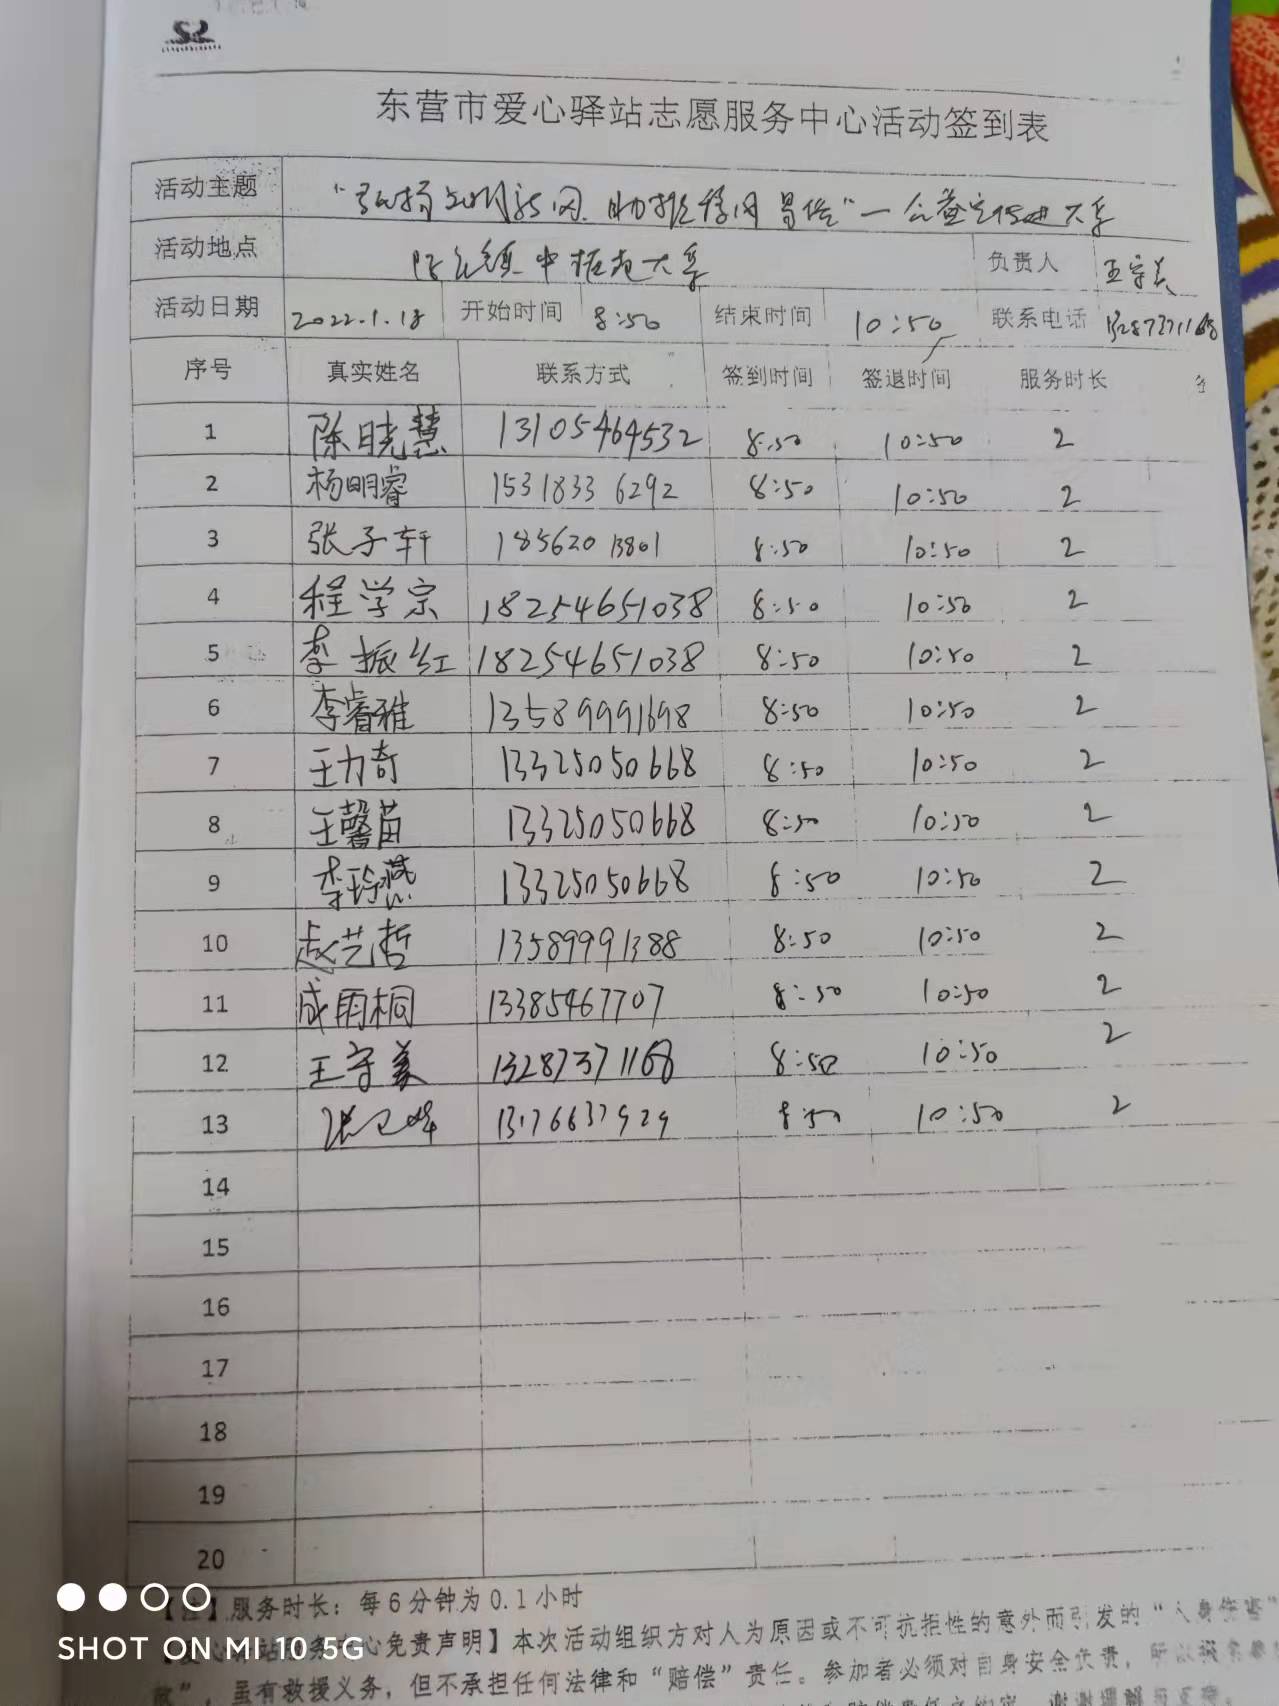 东营市爱心驿站志愿服务中心活动签到表
活动主题
活动地点 大集 负责人 王守美
活动日期 2022.1.18 开始时间 8:50 结束时间 10:50 联系电话 13287371168
序号 真实姓名 联系方式 签到时间 签退时间 服务时长
1 陈晓慧 13105464532 8:50 10:50 2
2 杨明睿 15318336292 8:50 10:50 2
3 张子轩 18562013801 8:50 10:50 2
4 程学宗 18254651038 8:50 10:50 2
5 李振红 18254651038 8:50 10:50 2
6 李睿雅 13589991698 8:50 10:50 2
7 王力奇 13325050668 8:50 10:50 2
8 王馨苗 13325050668 8:50 10:50 2
9 李玲燕 13325050668 8:50 10:50 2
10 赵艺哲 13589991388 8:50 10:50 2
11 成雨桐 13385467707 8:50 10:50 2
12 王守美 13287371168 8:50 10:50 2
13 13176637929 8:50 10:50 2
14
15
16
17
18
19
20
【注】服务时长：每6分钟为0.1小时
心免责声明】本次活动组织方对人为原因或不可抗拒性的意外而引发的“人身伤害”
虽有救援义务，但不承担任何法律和“赔偿”责任。参加者必须对自身安全负责，
SHOT ON MI 10 5G